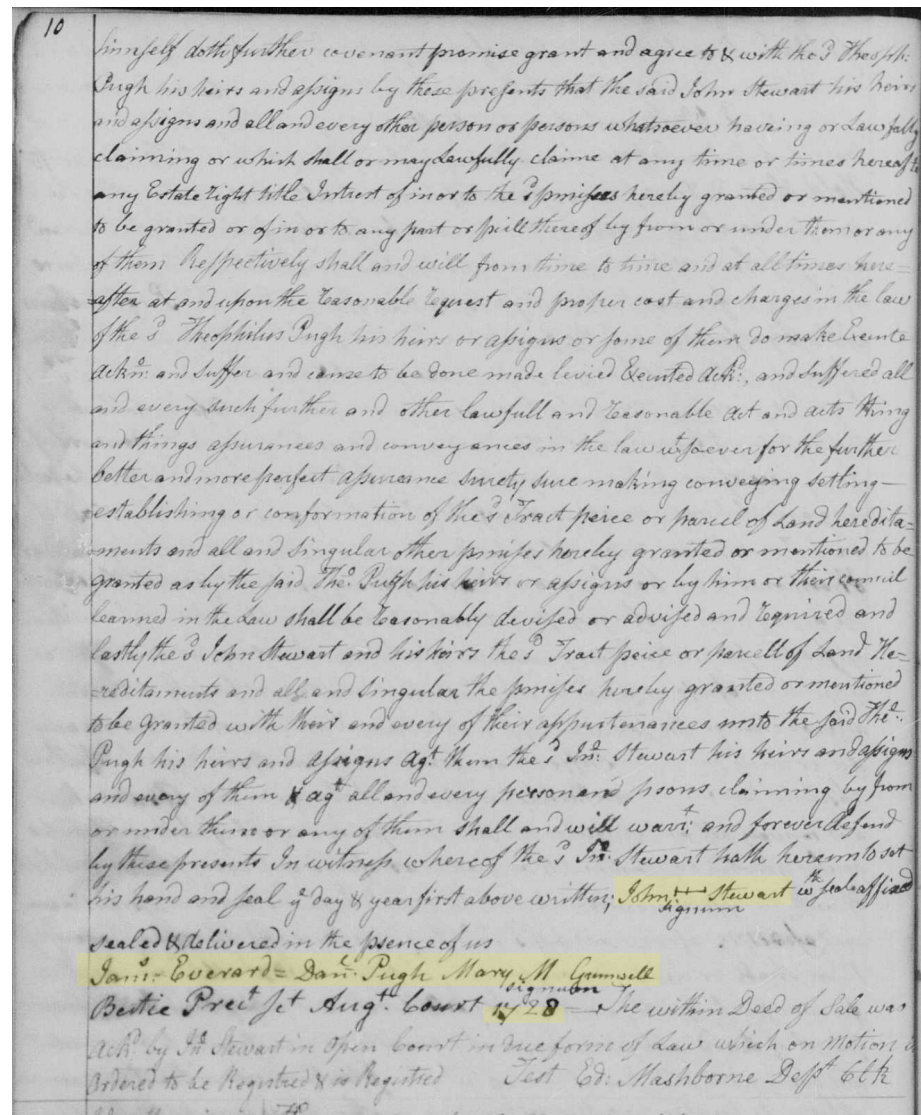 10
himself doth further covenant promise grant and agree to & with the sd Theoph:
Pugh his heirs and assigns by these presents that the said John Stewart his heirs
and assigns and all and every other person or persons whatsoever haveing or Lawfully
claiming or which shall or may Lawfully claime at any time or times hereafte
any Estate right title Intrest of in or to the sd pmises hereby granted or mentioned
to be granted or of in or to any part or psill thereof by from or under them or any
of them Respectively shall and will from time to time and at all times here=
=after at and upon the reasonable request and proper cost and charges in the law
of the sd Theophilus Pugh his heirs or assigns or some of them do make Execute
Ackn: and suffer and cause to be done made levied Executed Ackd:, and suffered all
and every such further and other lawfull and reasonable Act and acts thing
and things assurances and conveyances in the law wtsoever for the further
better and more perfect assureance surety sure making conveying setling—
establishing or conformation of the sd Tract peice or parcel of Land heredita=
=ments and all and Singular other pmises hereby granted or mentioned to be
granted as by the said Theo: Pugh his heirs or assigns or by him or their council
learned in the Law shall be reasonably devised or advised and required and
lastly the sd John Stewart and his heirs the sd Tract peice or parcell of Land He=
=reditaments and all and Singular the pmises hereby granted or mentioned
to be granted with their and every of their appurtenances unto the said Theo:
Pugh his heirs and assigns agt. them the sd Jno: Stewart his heirs and assigns
and every of them & agt all and every person and psons claiming by from
or under them or any of them shall and will warrt: and forever defend
by these presents In witness whereof the sd Jno: Stewart hath hereunto set
his hand and seal ye day & year first above written; John Stewart wth seal affixed
signum
sealed & delivered in the psence of us
Jams: Everard = Danl: Pugh Mary M Gumwell
signum
Bertie Prect Sct Augt. Court 1728 — The within Deed of Sale was
Ackd by Jno Stewart in Open Court in due form of Law which on motion
Ordered to be Registred & is Registred Test Ed: Mashborne Depty Clk